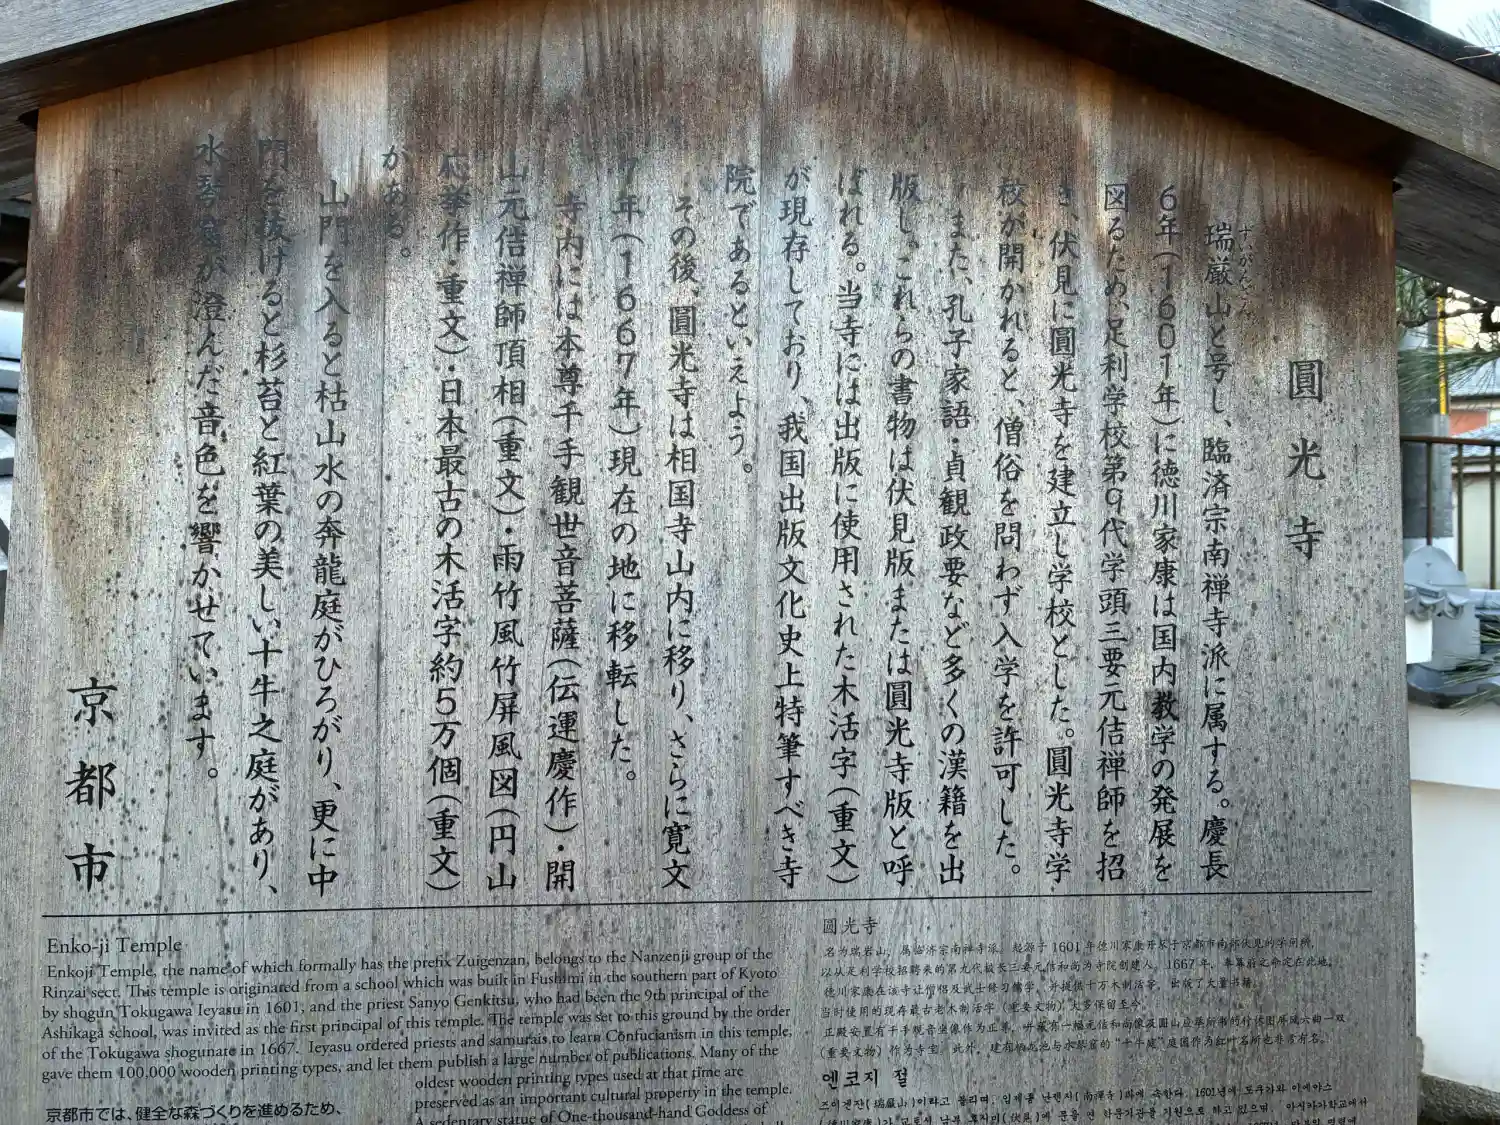 圓光寺
ずいがんざん
瑞巌山と号し、臨済宗南禅寺派に属する。慶長
6年(1601年)に徳川家康は国内教学の発展を
図るため、足利学校第9代学頭三要元佶禅師を招
き、伏見に圓光寺を建立し学校とした。圓光寺学
校が開かれると、僧俗を問わず入学を許可した。
また、孔子家語・貞観政要など多くの漢籍を出
版し、これらの書物は伏見版または圓光寺版と呼
ばれる。当寺には出版に使用された木活字(重文)
が現存しており、我国出版文化史上特筆すべき寺
院であるといえよう。
その後、圓光寺は相国寺山内に移り、さらに寛文
7年(1667年)現在の地に移転した。
寺内には本尊千手観世音菩薩(伝運慶作)・開
山元佶禅師頂相(重文)・雨竹風竹屏風図(円山
応挙作・重文)・日本最古の木活字約5万個(重文)
がある。
山門を入ると枯山水の奔龍庭がひろがり、更に中
門を抜けると杉苔と紅葉の美しい十牛之庭があり、
水琴窟が澄んだ音色を響かせています。
京都市
Enko-ji Temple
Enkoji Temple, the name of which formally has the prefix Zuigenzan, belongs to the Nanzenji group of the
Rinzai sect. This temple is originated from a school which was built in Fushimi in the southern part of Kyoto
by shogun Tokugawa Ieyasu in 1601, and the priest Sanyo Genkitsu, who had been the 9th principal of the
Ashikaga school, was invited as the first principal of this temple. The temple was set to this ground by the order
of the Tokugawa shogunate in 1667. Ieyasu ordered priests and samurais to learn Confucianism in this temple,
gave them 100,000 wooden printing types, and let them publish a large number of publications. Many of the
oldest wooden printing types used at that time are
preserved as an important cultural property in the temple.
A sedentary statue of One-thousand-hand Goddess of
京都市では、健全な森づくりを進めるため、
圓光寺
名为瑞岩山，属临济宗南禅寺派。起源于1601年德川家康开基于京都市南部伏见的学问所，
以从足利学校招聘来的第九代校长三要元佶和尚为寺院创建人。1667年，奉幕府之命定在此地。
德川家康在该寺让僧侣及武士修习儒学，并提供十万木制活字，出版了大量书籍。
当时使用的现存最古老木制活字（重要文物）大多保留至今。
（重要文物）作为寺宝
엔코지 절